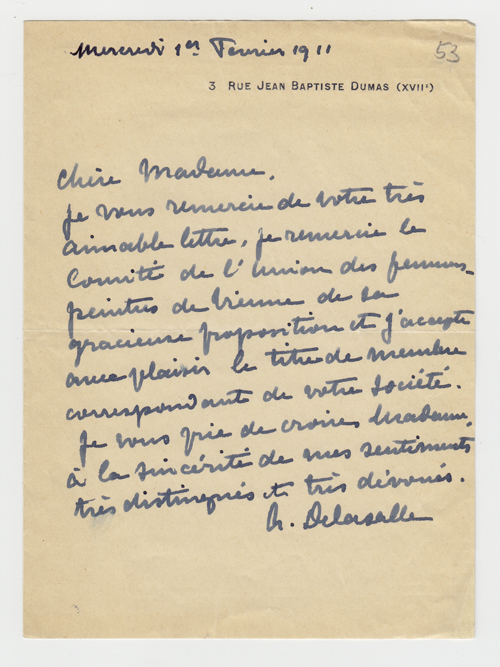 Mercredi 1er Fevrier 1911
53
3 RUE JEAN BAPTISTE DUMAS (XVIIe)
Chère Madame,
je vous remercie de votre très
aimable lettre, je remercie le
Comité de l'Union des femmes-
peintres de Vienne de sa
gracieuse proposition et j'accepte
avec plaisir le titre de membre
correspondant de votre Société.
Je vous prie de croire, Madame,
à la sincérité de mes sentiments
très distingués et très dévoués.
A. Delasalle